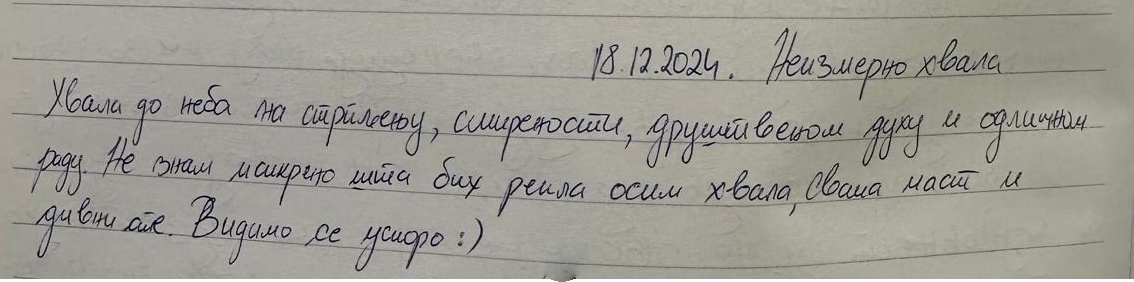 18.12.2024. Неизмерно хвала
Хвала до неба на стрпљењу, смирености, друштвеном духу и одличном
раду. Не знам искрено шта бих рекла осим хвала, свака част и
дивни сте. Видимо се ускоро :)